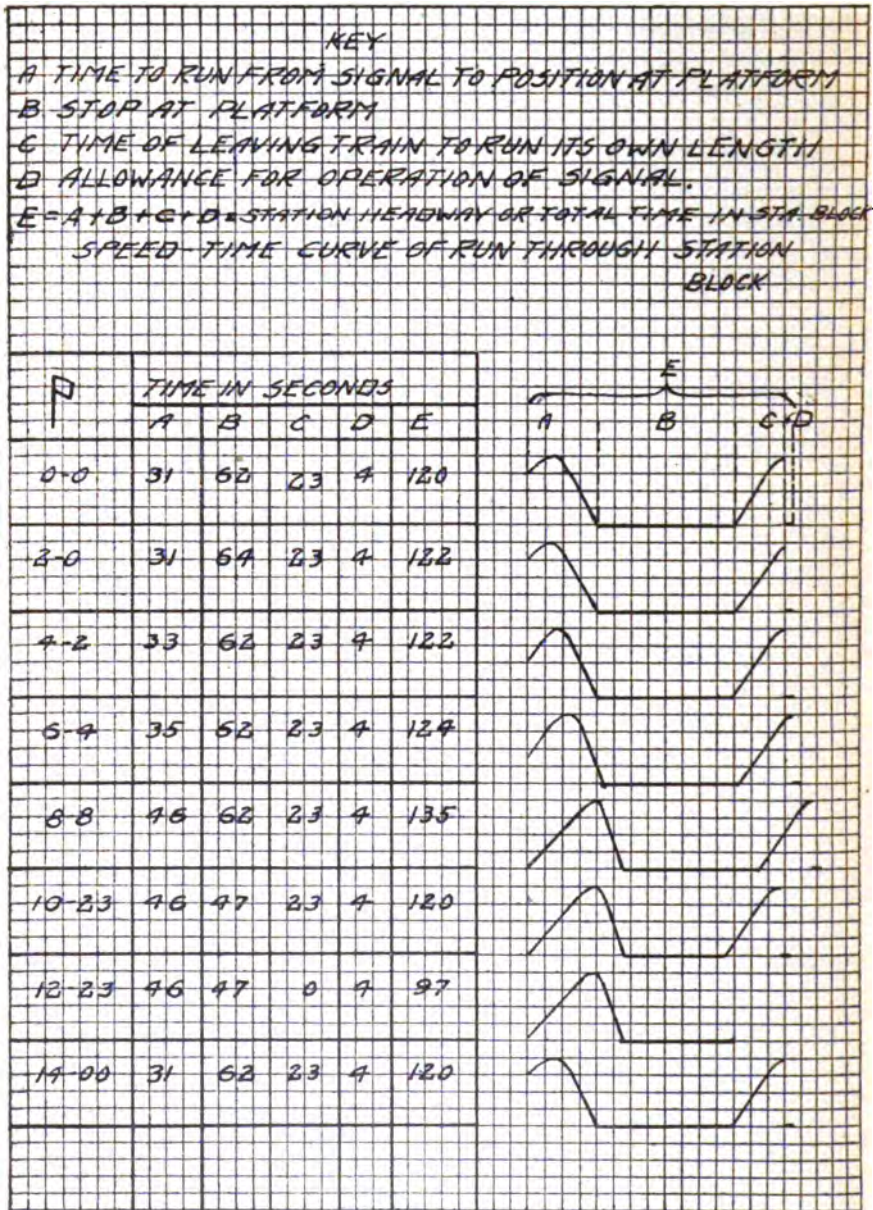 KEY
A TIME TO RUN FROM SIGNAL TO POSITION AT PLATFORM
B STOP AT PLATFORM
C TIME OF LEAVING TRAIN TO RUN ITS OWN LENGTH
D ALLOWANCE FOR OPERATION OF SIGNAL.
E=A+B+C+D=STATION HEADWAY OR TOTAL TIME IN STA. BLOCK
SPEED-TIME CURVE OF RUN THROUGH STATION
BLOCK
P TIME IN SECONDS
A B C D E
0-0 31 62 23 4 120
2-0 31 64 23 4 122
4-2 33 62 23 4 122
6-4 35 62 23 4 124
8-8 46 62 23 4 135
10-23 46 47 23 4 120
12-23 46 47 0 4 97
14-00 31 62 23 4 120
E
A B C D